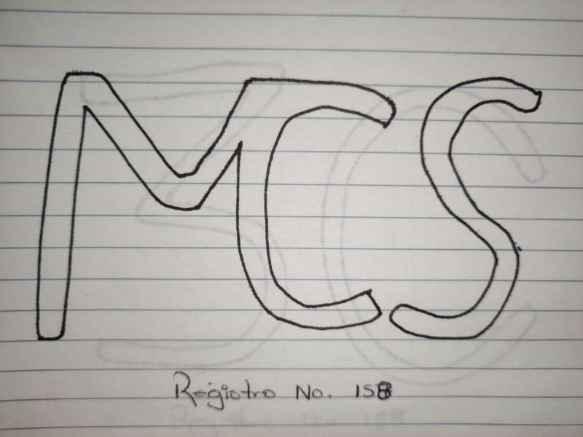 MCS
Registro No. 158